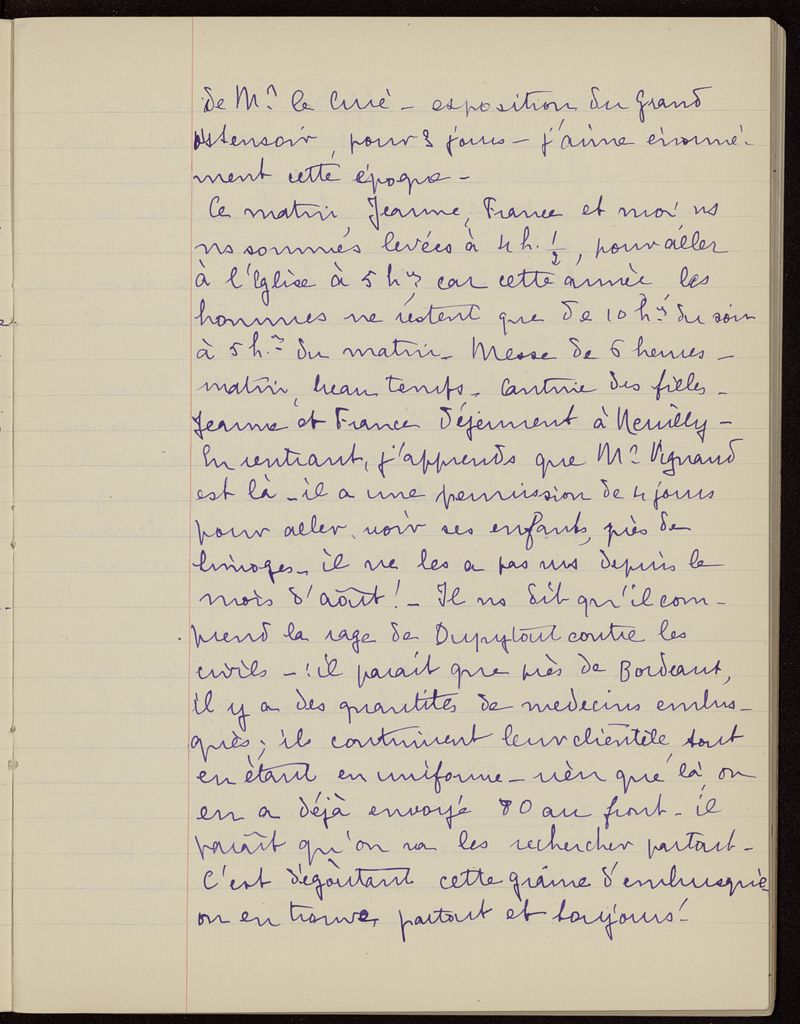 de Mr le Curé – exposition du Grand
Ostensoir, pour 3 jours – j'aime énormé-
ment cette époque –
Ce matin, Jeanne, France et moi ns
ns sommes levées à 4 h. 1/2, pour aller
à l'Eglise à 5 hres car cette année, les
hommes ne restent que de 10 hres du soir
à 5 hres du matin – Messe de 6 heures –
matin, beau temps – Cantine des filles –
Jeanne et France déjeunent à Neuilly –
En rentrant, j'apprends que Mr Vignaud
est là – il a une permission de 4 jours
pour aller voir ses enfants, près de
Limoges – il ne les a pas vus depuis le
mois d'août ! – Il ns dit qu'il com-
prend la rage de Dupytout contre les
civils – : il parait que près de Bordeaux,
il y a des quantités de medecins embus-
qués ; ils continuent leur clientèle, tout
en étant en uniforme – rien que là, on
en a déjà envoyé 80 au front – il
paraît qu'on va les rechercher partout –
C'est dégoûtant cette graine d'embusqué
on en trouve, partout et toujours !